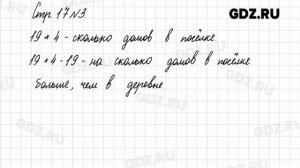 Стр. 17 №3.
GDZ.RU
19 * 4 - сколько домов в посёлке
19 * 4 - 19 - на сколько домов в посёлке
больше, чем в деревне
GDZ.RU